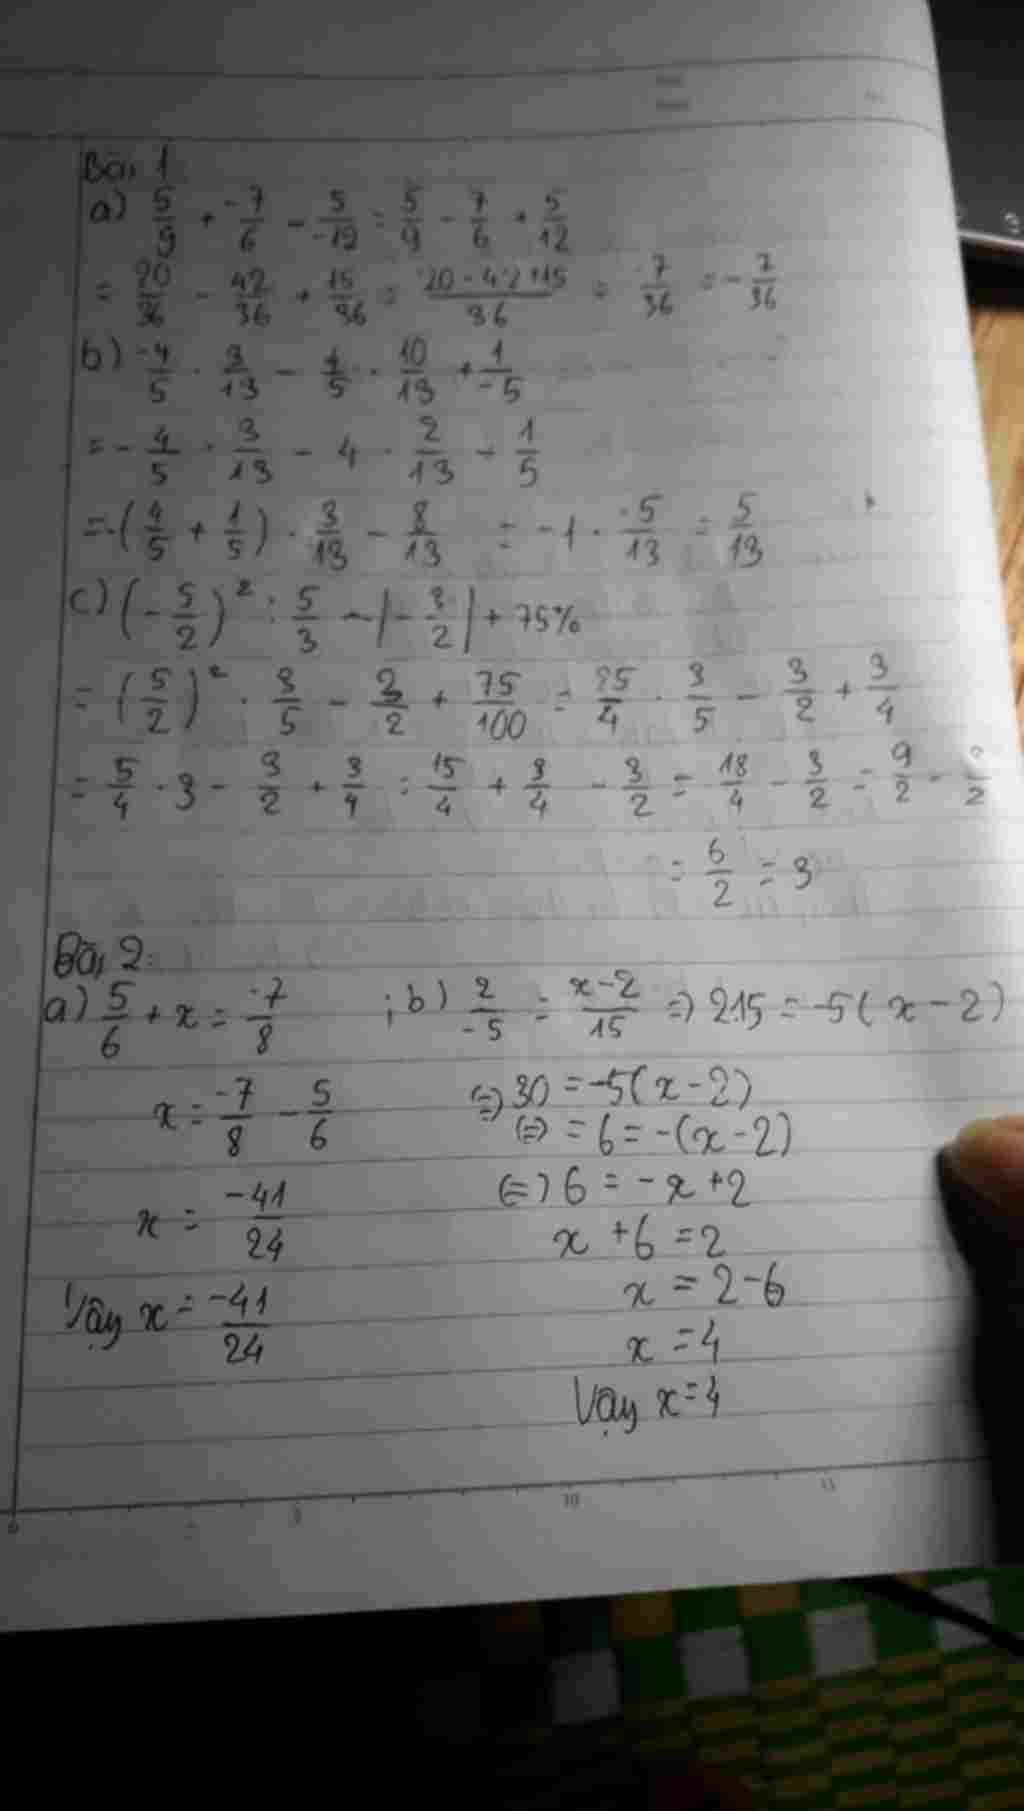 Bài 1
a) 5/9 + -7/6 - 5/-12 = 5/9 - 7/6 + 5/12
= 20/36 - 42/36 + 15/36 = 20-42+15/36 = -7/36 = -7/36
b) -4/5 . 3/13 - 4/5 . 10/13 + 1/-5
= -4/5 . 3/13 - 4 . 2/13 - 1/5
= -(4/5 + 1/5) . 3/13 - 8/13 = -1 . -5/13 = 5/13
c) (-5/2)² : 5/3 - |-3/2| + 75%
= (5/2)² . 3/5 - 3/2 + 75/100 = 25/4 . 3/5 - 3/2 + 3/4
= 5/4 . 3 - 3/2 + 3/4 = 15/4 + 3/4 - 3/2 = 18/4 - 3/2 = 9/2 - /2
= 6/2 = 3
Bài 2:
a) 5/6 + x = -7/8 ; b) 2/-5 = x-2/15 => 2.15 = -5(x-2)
x = -7/8 - 5/6
x = -41/24
Vậy x = -41/24
(=) 30 = -5(x-2)
(=) = 6 = -(x-2)
(=) 6 = -x+2
x + 6 = 2
x = 2-6
x = 4
Vậy x = 4
10